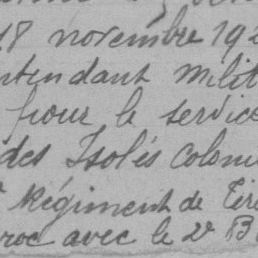 18 novembre 192
ntendant milit
pour le service
des Isolés coloni
Régiment de Tir
roc avec le 2e B